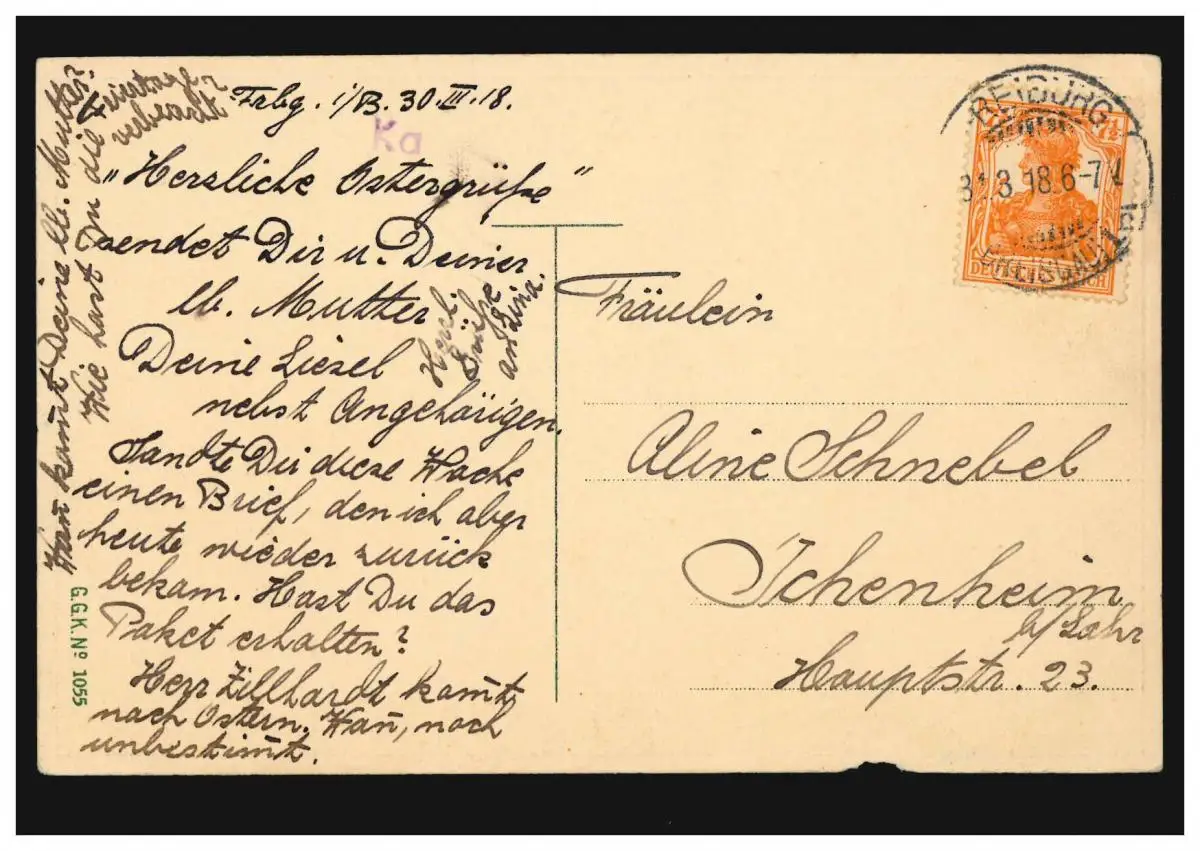 Frbg. i/B. 30.III.18.
Ka
„Herzliche Ostergrüße"
sendet Dir u. Deiner
lb. Mutter
Deine Liesel
nebst Angehörigen.
Sandte Dir diese Woche
einen Brief, den ich aber
heute wieder zurück
bekam. Hast Du das
Paket erhalten?
Herr Zillhardt kom̄t
nach Ostern. Wan̄, noch
unbestim̄t.
Herzl.
Grüße
an Lina.
Wan̄ kom̄t Deine lb. Mutter?
Wie hast Du die Feiertage
verbracht
G.G.K.Nº 1055
FREIBURG
31.3.18.6-7
BREISGAU
7½
DEUTSCHES REICH
Fräulein
Aline Schnebel
Ichenheim
b/Lahr
Hauptstr. 23.